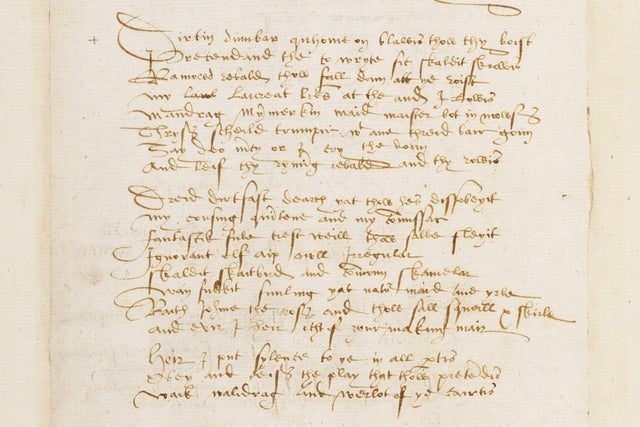 Dirtin dumbar quhome on blawis thow thy boist
Pretendand the to wryte sic skaldit skrowis
Ramowd rebald thow fall doun att ye roist
My laureat lres at the and I lowis
Mandrag mymerkin maid maister bot in mowis
Thrys scheild trumpir wt ane threid bair goun
Say deo mercy or I cry the doun
And leif thy ryming rebald and thy rowis
Dreid dirtfast dearch yat thow hes dissobeyit
My cousing quintene and my comissar
Fantastik fule trest weill thow salbe fleyit
Ignorant elf aip owll Irregular
Skaldit skaitbird and comoun skamelar
Wan fukkit funling yat natour maid ane yrle
Baith Johine the ross and thow sall squeill & skirle
and evir I heir ocht of your making mair
Heir I put sylence to ye in all partis
Obey and ceiss the play that thow pretendis
Waik walidrag and werlot of ye cairtis